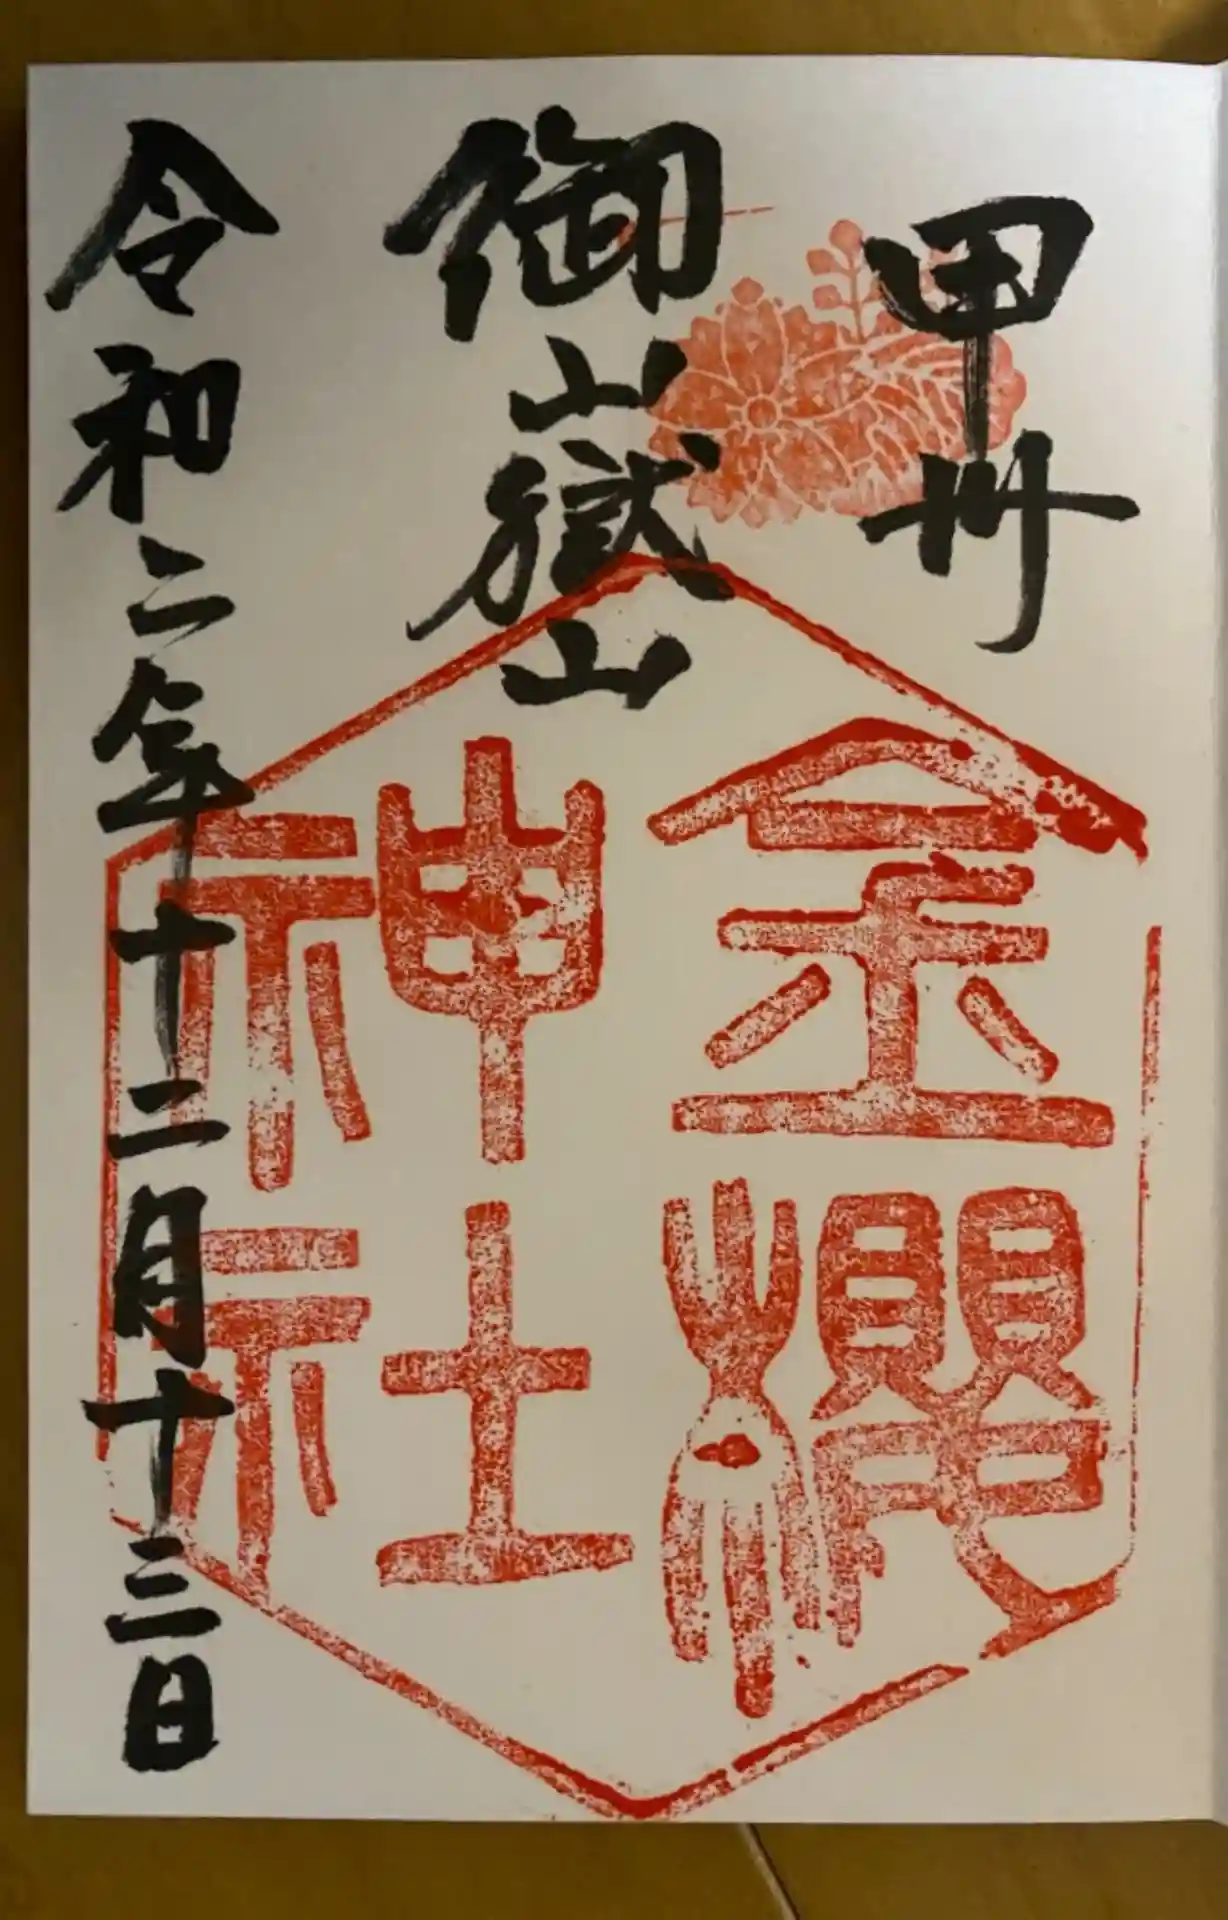 甲州
御山嶽山
金櫻
神社
令和二年十二月十三日